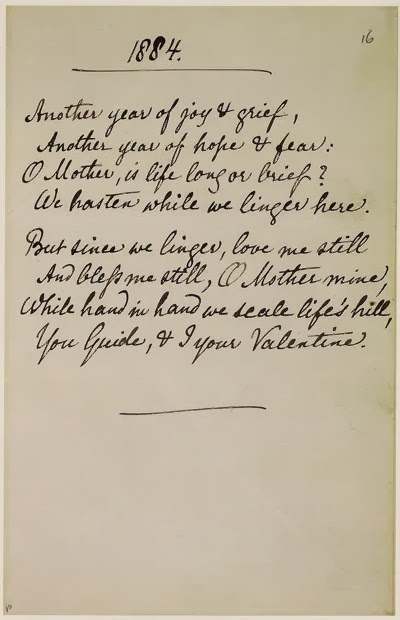 16
1884.
Another year of joy & grief,
Another year of hope & fear:
O Mother, is life long or brief?
We hasten while we linger here.
But since we linger, love me still
And bless me still, O Mother mine,
While hand in hand we scale life's hill,
You Guide, & I your Valentine.